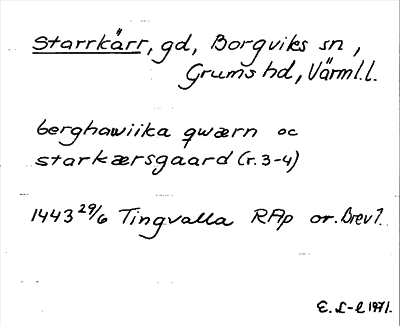 Starrkärr, gd, Borgviks sn,
Grums hd, Värml.l.
berghawiika qwærn oc
starkærsgaard (r.3-4)
1443 29/6 Tingvalla RAp or. Brev 1.
E. L-l 1971.